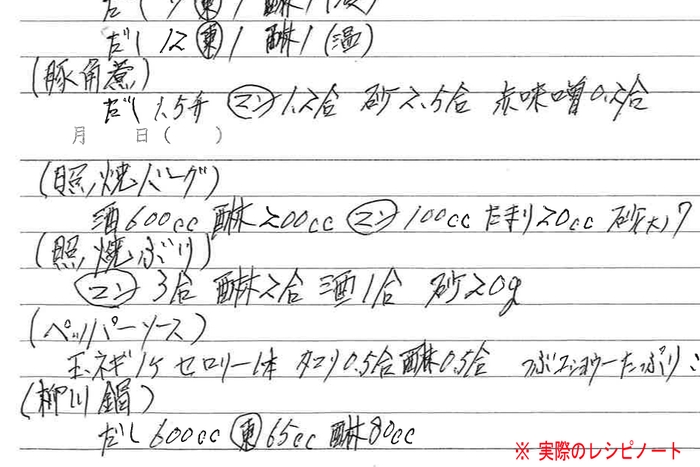 だし 12 ㊍東 1 酛 1 (温)
(豚角煮)
だし 1.5升 マン 1.2合 砂 2.5合 赤味噌 0.2合
月 日 ( )
(照焼バーグ)
酒 600cc 酛 200cc マン 100cc たまり 20cc 砂(大)7
(照焼ぶり)
マン 3合 酛 2合 酒 1合 砂20g
(ペッパーソース)
玉ネギ 1ケ セロリー 1本 タマリ 0.5合 酛 0.5合 つぶコショウーたっぷり
(柳川鍋)
だし 600cc 東 65cc 酛 80cc
※ 実際のレシピノート